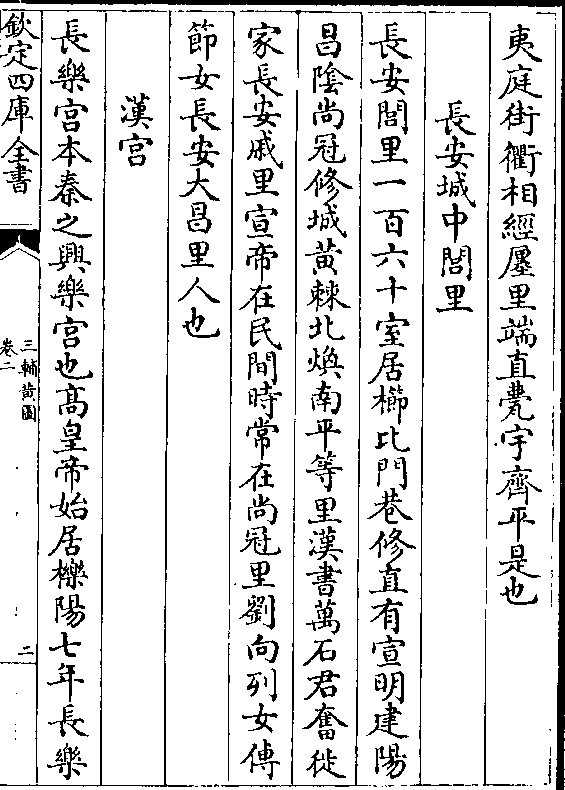 夷庭街衢相經廛里端直甍宇齊平是也
長安城中閭里
長安閭里一百六十室居櫛比門巷修直有宣明建陽
昌陰尚冠修城黄棘北煥南平等里漢書萬石君奮徙
家長安戚里宣帝在民間時常在尚冠里劉向列女傳
節女長安大昌里人也
漢宫
長樂宫本秦之興樂宫也髙皇帝始居櫟陽七年長樂
欽定四庫全書
三輔黄圖
卷二
二